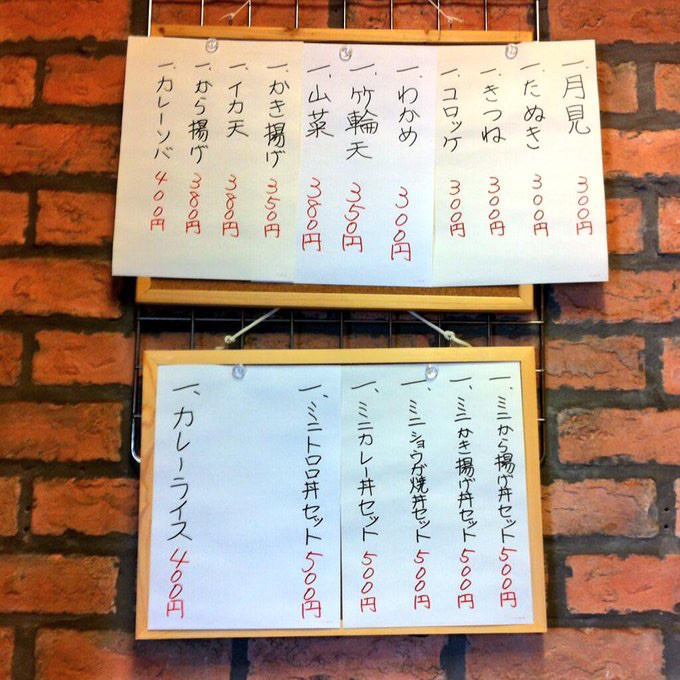 一、月見 300円
一、たぬき 300円
一、きつね 300円
一、コロッケ 300円
一、わかめ 300円
一、竹輪天 350円
一、山菜 380円
一、かき揚げ 350円
一、イカ天 380円
一、から揚げ 380円
一、カレーソバ 400円
一、ミニから揚げ丼セット 500円
一、ミニかき揚げ丼セット 500円
一、ミニショウガ焼丼セット 500円
一、ミニカレー丼セット 500円
一、ミニトロロ丼セット 500円
一、カレーライス 400円